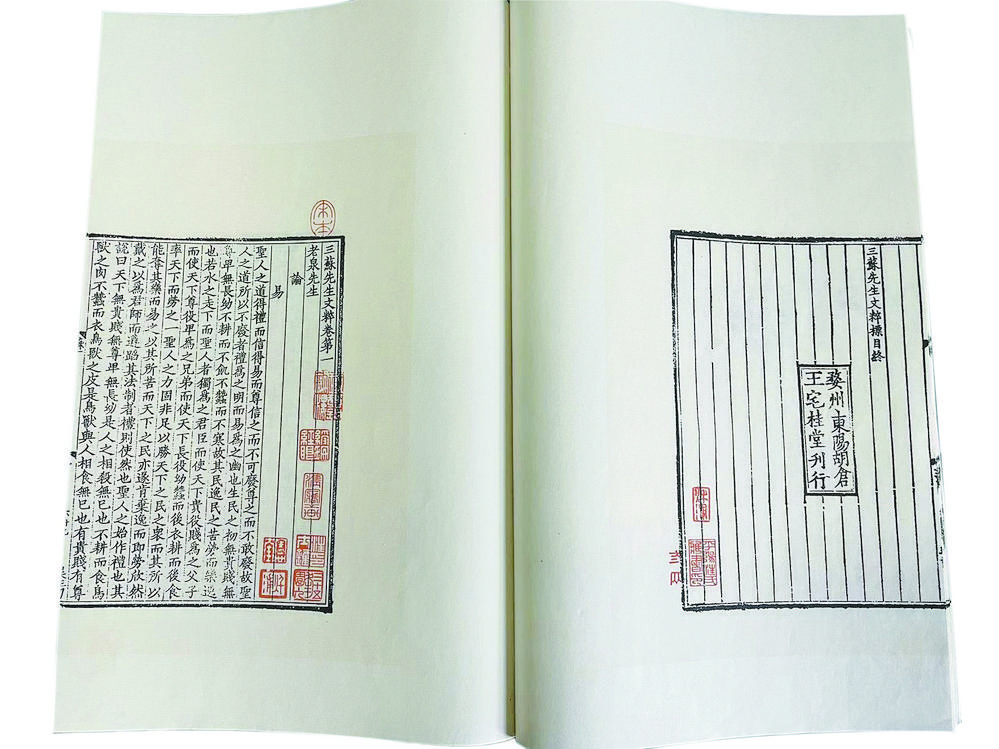 三蘇先生文粹標目終
婺州東陽胡倉
王宅桂堂刊行
宋本
三蘇先生文粹卷第一
老泉先生
論
易
聖人之道得禮而信得易而尊信之而不可廢尊之而不敢廢故聖
人之道所以不廢者禮爲之明而易爲之幽也生民之初無貴賤無
尊卑無長幼不耕而不飢不蠶而不寒故其民逸民之苦勞而樂逸
也若水之走下而聖人者獨爲之君臣而使天下貴役賤爲之父子
而使天下尊役卑爲之兄弟而使天下長役幼蠶而後衣耕而後食
率天下而勞之一聖人之力固非足以勝天下之民之衆而其所以
能奪其樂而易之以其所苦而天下之民亦遂肯棄逸而即勞欣然
戴之以爲君師而遵蹈其法制者禮則使然也聖人之始作禮也其
說曰天下無貴賤無尊卑無長幼是人之相殺無已也不耕而食鳥
獸之肉不蠶而衣鳥獸之皮是鳥獸與人相食無已也有貴賤有尊